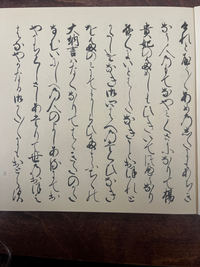 やう〱あめのしたにもあちき
なう人のもてなやみくさになりて楊
貴妃のためしもひきいてつへうなり
ゆくにいとはしたなきことおほかれと
かたしけなき御心はへのたくひなき
をたのみにてましらひたまふちゝの
大納言はなくなりてはゝきたのかた
なむいにしへの人のよしあるにてお
やうちくしさしあたりて世のおほえ
はなやかなる御かた〱にも